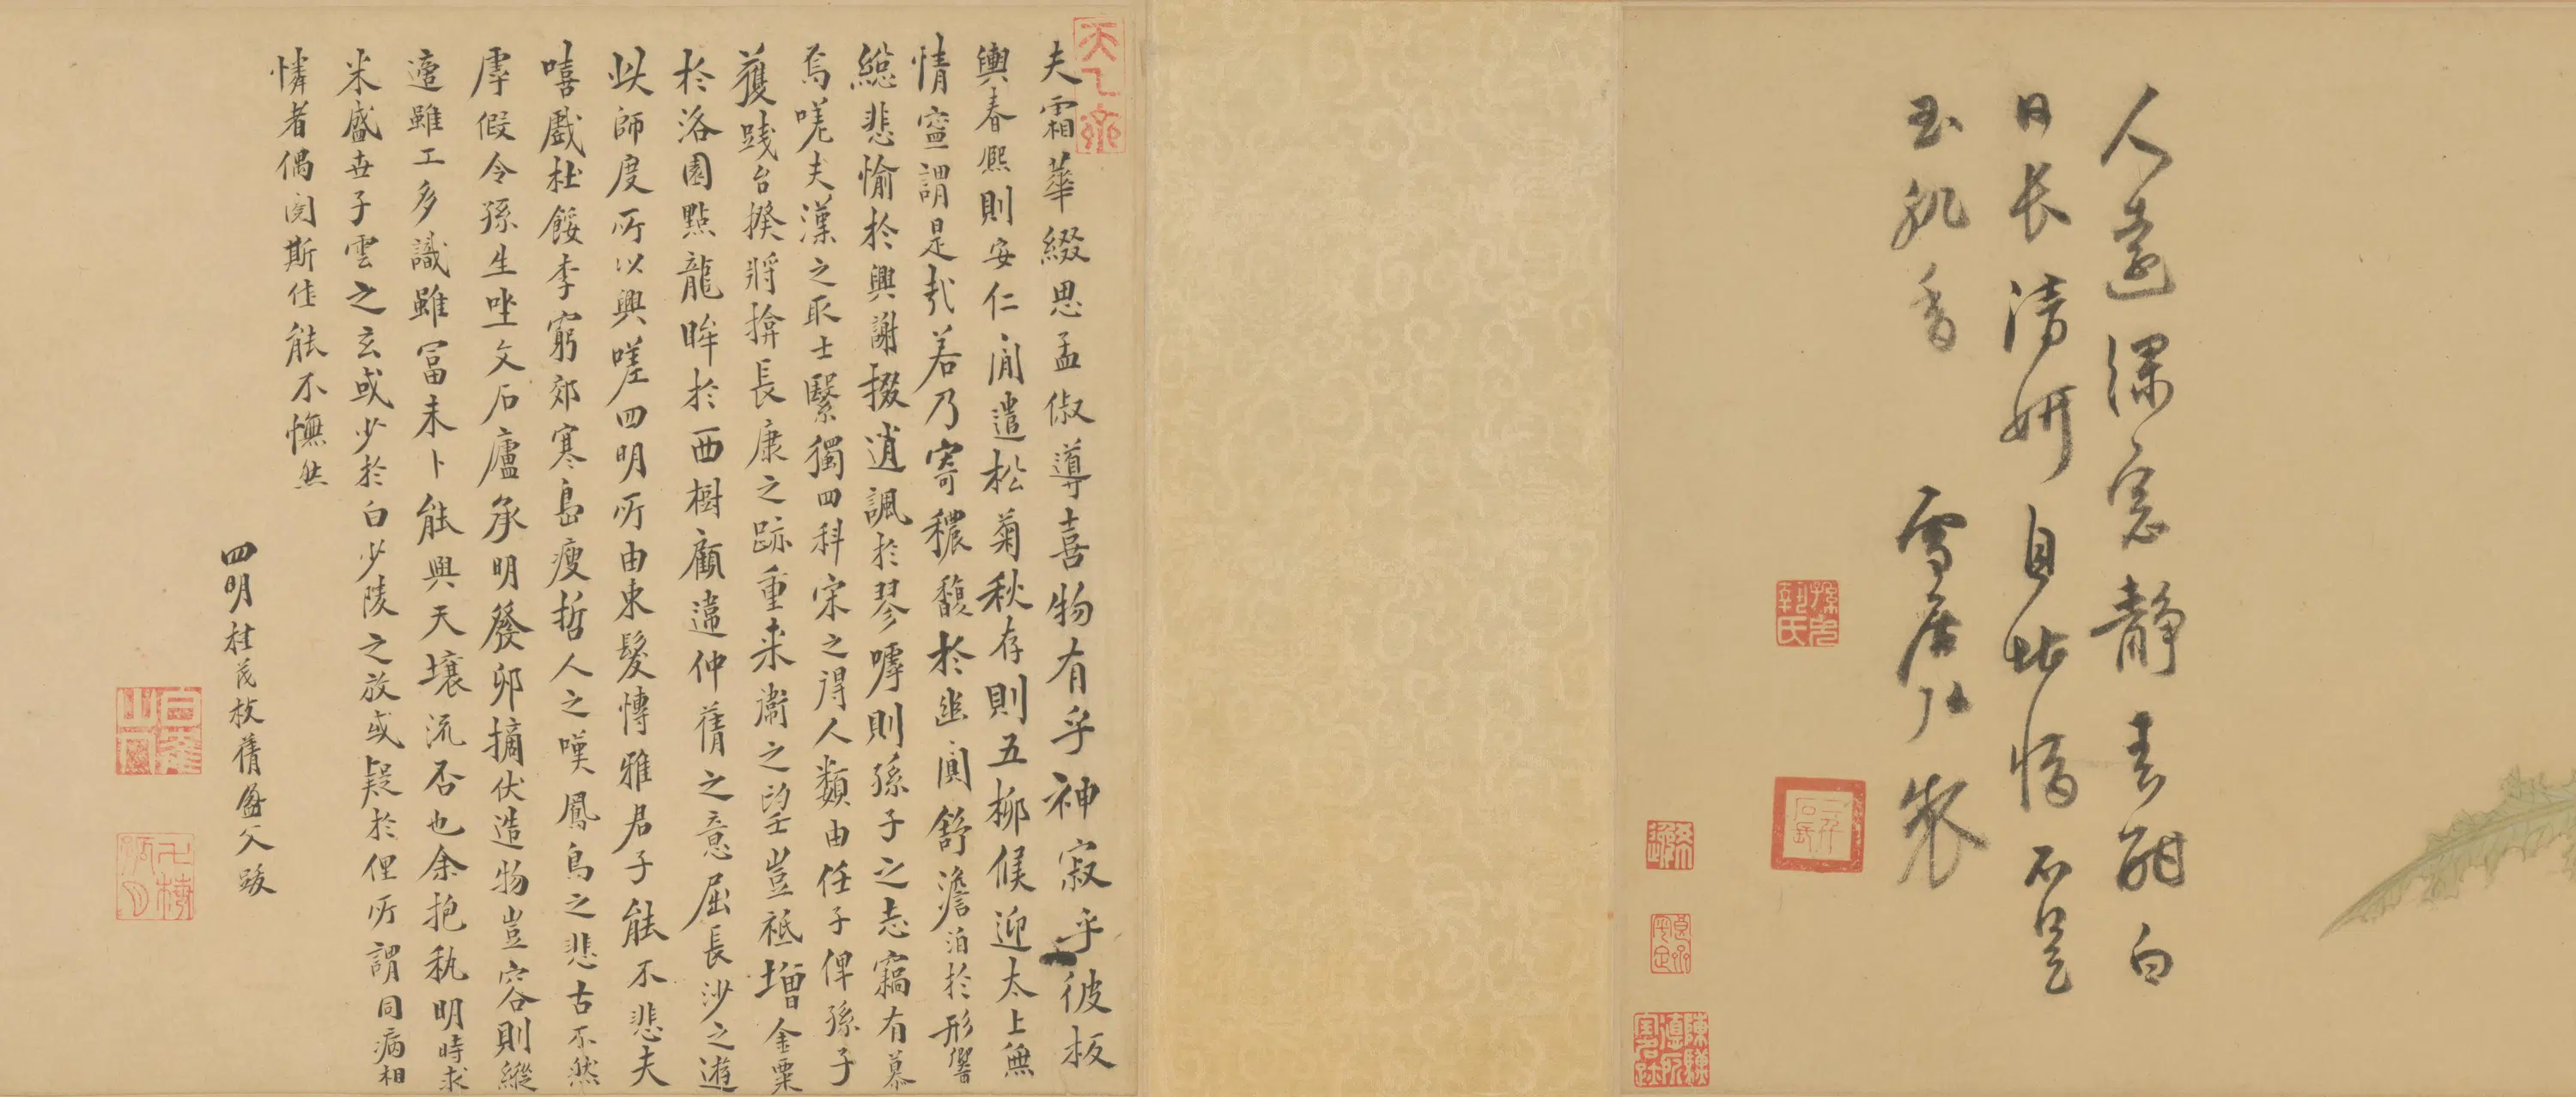 人遠深意靜素酣白
日長清妍自比情不是
玉肌香 雪居弘製
夫霜華綴思孟俶導喜物有乎神寂乎彼板
輿春熙則安仁閒遣松菊秋存則五柳候迎太上無
情寧謂是歟若乃寄穠馥於幽閴舒澹泊於形響
總悲愉於興謝掇逍諷於琴嘑則孫子之志竊有慕
焉嗟夫漢之取士繄獨四科宋之得人類由任子俾孫子
獲踐台揆將揜長康之跡重來衞之望豈祗增金粟
於洛園點龍眸於西榭顧違仲蒨之意屈長沙之遊
此師度所以興嗟四明所由束髮慱雅君子能不悲夫
嘻戲杜餒李窮郊寒島瘦哲人之嘆鳳鳥之悲古不然
虖假令孫生坐文石廬承明發卯摘伏造物豈容則縱
適雖工多識雖富未卜能與天壤流否也余抱執明時求
米盛世子雲之玄或少於白少陵之放或疑於俚所謂同病相
憐者偶閱斯佳能不憮然
四明桂茂枝蒨盦父跋